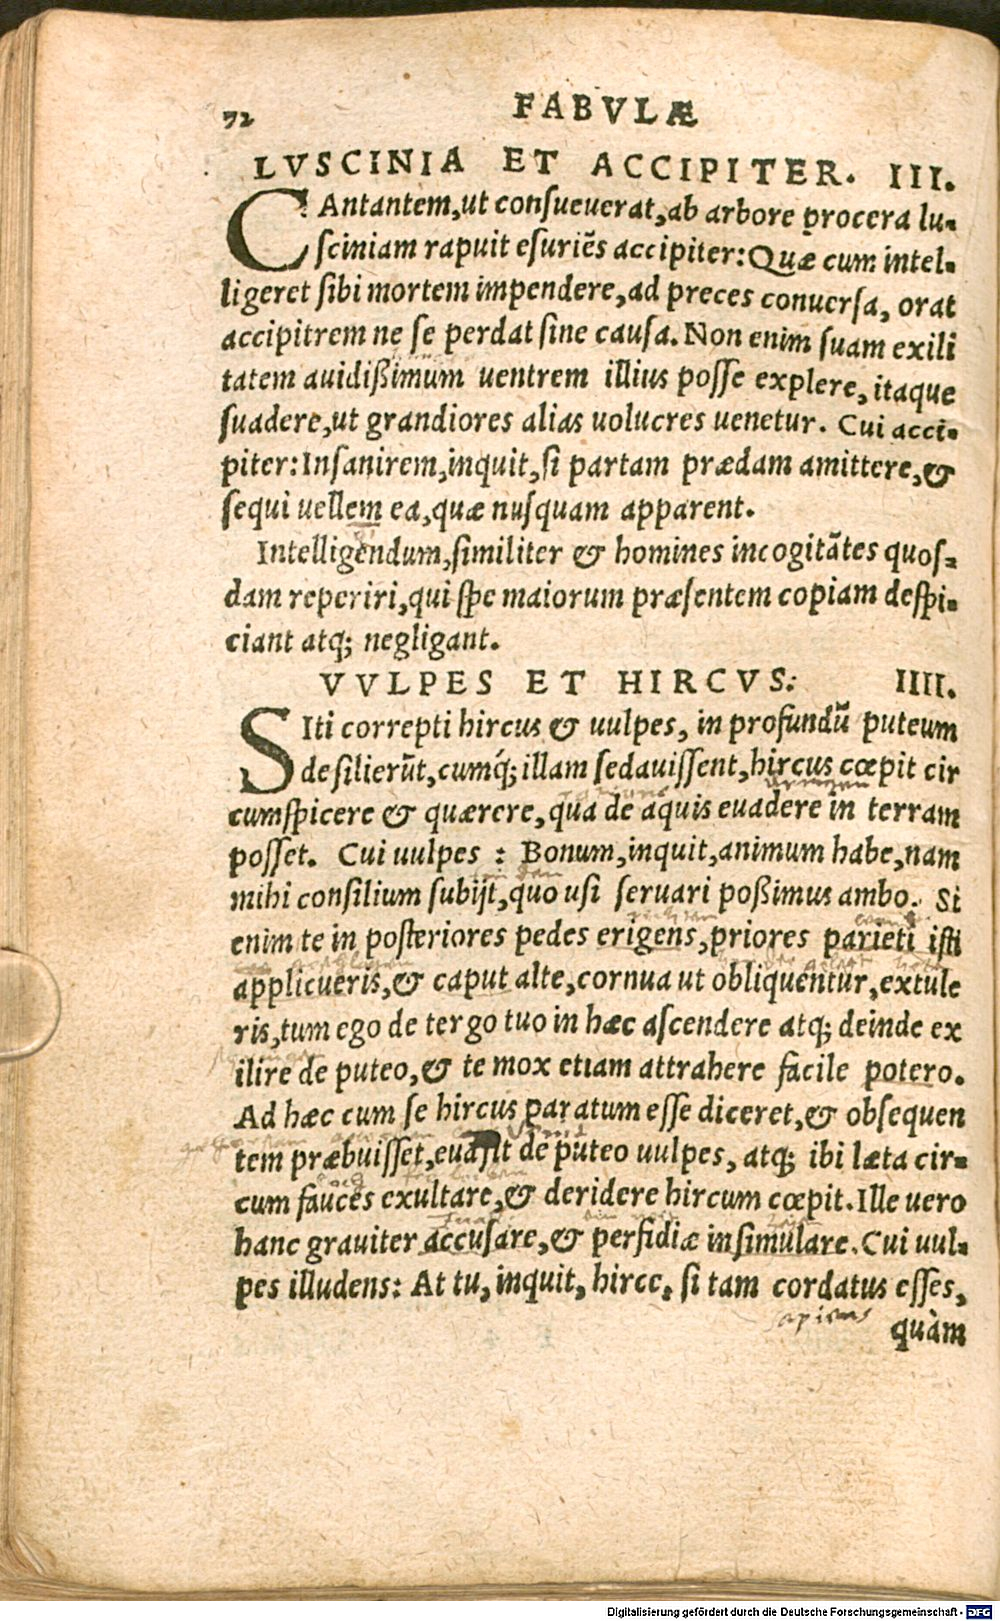 72 FABVLÆ
LVSCINIA ET ACCIPITER. III.
CAntantem, ut consueuerat, ab arbore procera lu-
sciniam rapuit esuriēs accipiter: Quæ cum intel-
ligeret sibi mortem impendere, ad preces conuersa, orat
accipitrem ne se perdat sine causa. Non enim suam exili
tatem auidißimum uentrem illius posse explere, itaque
suadere, ut grandiores alias uolucres uenetur. Cui acci-
piter: Insanirem, inquit, si partam prædam amittere, &
sequi uellem ea, quæ nusquam apparent.
Intelligendum, similiter & homines incogitātes quos-
dam reperiri, qui spe maiorum præsentem copiam despi-
ciant atq; negligant.
VVLPES ET HIRCVS. IIII.
SIti correpti hircus & uulpes, in profundū puteum
desilierūt, cumq́; illam sedauissent, hircus cœpit cir
cumspicere & quærere, qua de aquis euadere in terram
posset. Cui uulpes : Bonum, inquit, animum habe, nam
mihi consilium subijt, quo usi seruari poßimus ambo. Si
enim te in posteriores pedes erigens, priores parieti isti
applicueris, & caput alte, cornua ut obliquentur, extule
ris, tum ego de tergo tuo in hæc ascendere atq; deinde ex
ilire de puteo, & te mox etiam attrahere facile potero.
Ad hæc cum se hircus paratum esse diceret, & obsequen
tem præbuisset, euasit de puteo uulpes, atq; ibi læta cir-
cum fauces exultare, & deridere hircum cœpit. Ille uero
hanc grauiter accusare, & perfidiæ insimulare. Cui uul-
pes illudens: At tu, inquit, hirce, si tam cordatus esses,
sapiens
quàm
Digitalisierung gefördert durch die Deutsche Forschungsgemeinschaft - DFG